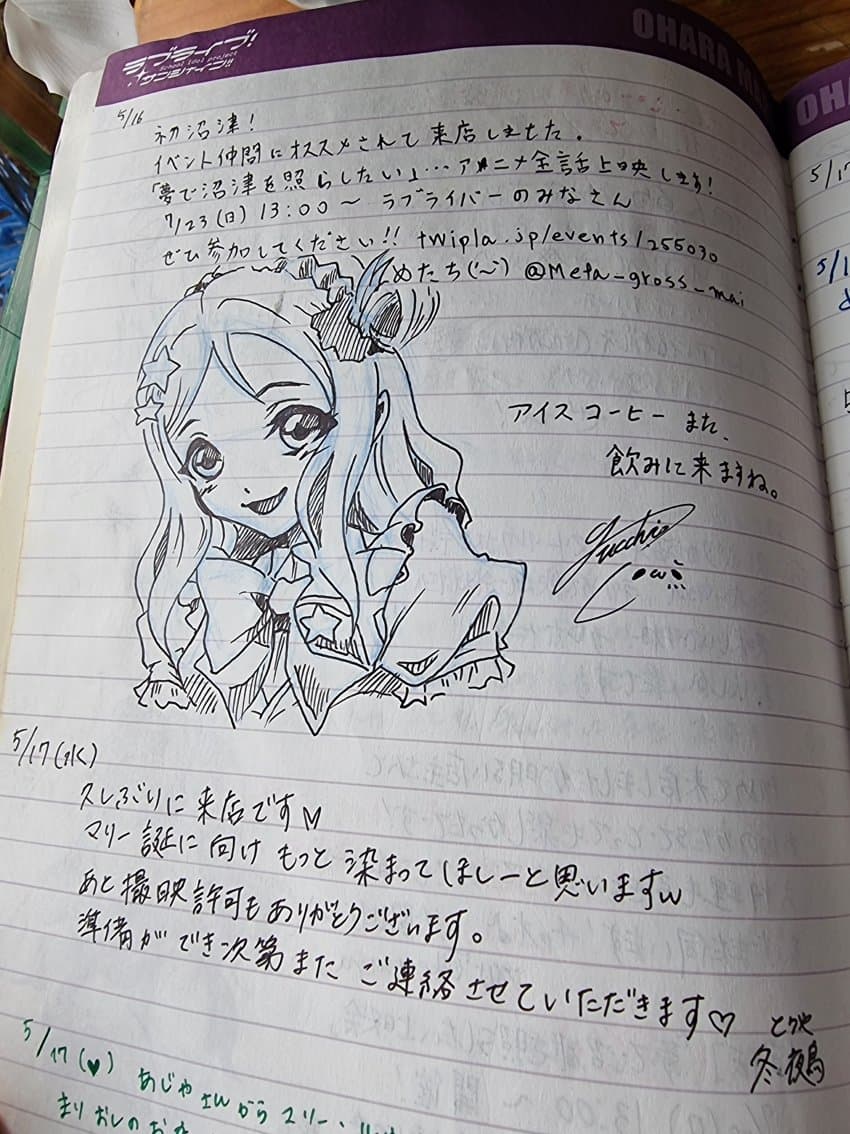 ラブライブ!
School idol project
サンシャイン!!
OHARA MA
OH
5/16
初沼津!
イベント仲間にオススメされて来店しました。
「夢で沼津を照らしたい」…アニメ全話上映します!
7/23(日) 13:00〜 ラブライバーのみなさん
ぜひ参加してください!! twipla.jp/events/255030
めたち(˘~˘) @Meta_gross_mai
アイスコーヒー また、
飲みに来ますね。
5/17(水)
久しぶりに来店です♡
マリー誕に向けもっと染まってほしーと思いますw
あと撮映許可もありがとうございます。
準備ができ次第またご連絡させていただきます♡
5/17(♥) あじゃさんから
まりおしの
5/17